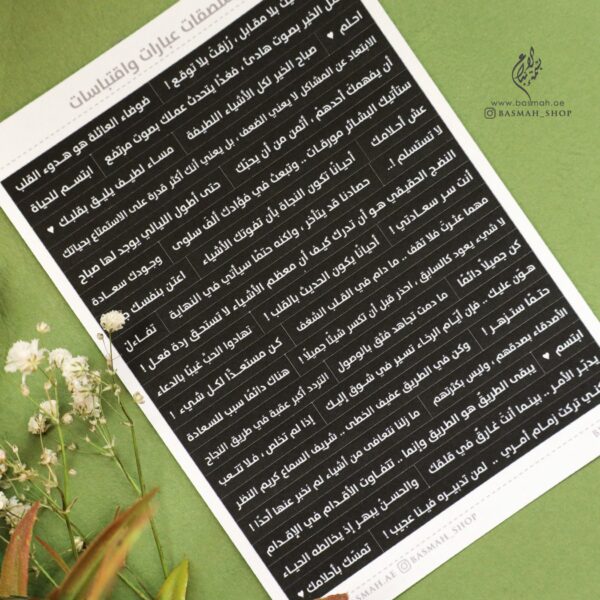 ملصقات عبارات واقتباسات
بلا مقابل ، رُزقت بلا توقع !
فوضاء العائلة هو هدوء القلب
احلم ♥
الخير بصوت هادئ ، فغدًا يتحدث عملك بصوت مرتفع
ابتسم للحياة
صباح الخير لكل الأشياء اللطيفة
مساء لطيف يليق بقلبك ♥
الابتعاد عن المشاكل لا يعني الضعف ، بل يعني أنك أكثر قدرة على الاستمتاع بحياتك
أن يفهمك أحدهم ، أثمن من أن يحبك
حتى أطول الليالي يوجد لها صباح
ستأتيك البشائر مورقات .. وتبعث في فؤادك ألف سلوى
وجودك سعادة
عش أحلامك
أحيانًا تكون النجاة بأن تفوتك الأشياء
اعتن بنفسك
لا تستسلم !..
حصادنا قد يتأخر ، ولكنه حتمًا سيأتي في النهاية
تفاءل
النضج الحقيقي هو أن تدرك كيف أن معظم الأشياء لا تستحق ردة فعل !
أنت سر سعادتي !
أحيانًا يكون الحديث بالقلب !
تهادوا الحب غيبًا بالدعاء
مهما عثرت فلا تقف .. ما دام في القلب الشغف
كن مستعدًا لكل شيء !
لا شيء يعود كالسابق ، احذر قبل أن تكسر شيئًا جميلًا !
هناك دائمًا سبب للسعادة
كن جميلًا دائمًا
ما دمت تجاهد فثق بالوصول
التردد أكبر عقبة في طريق النجاح
هوّن عليك .. فإن أيّام الرخاء تسير في شوق إليك
إذا لم تخلص ، فلا تتعب
حتمًا ستزهر !
وكن في الطريق عفيف الخطى .. شريف السماع كريم النظر
الأصدقاء بصدقهم ، وليس بكثرتهم
ما زلنا نتعافى من أشياء لم نخبر عنها أحدًا !
ابتسم ♥
يبقى الطريق هو الطريق وإنما .. تتفاوت الأقدام في الإقدام
يدبّر الأمر .. بينما أنت غارق في قلقك
والحسن يبهر إذ يخالطه الحياء
تركت زمام أمري .. لمن تدبيره فينا عجيب !
تمسّك بأحلامك ♥
BASMAH.AE
BASMAH_SHOP
www.basmah.ae
BASMAH_SHOP